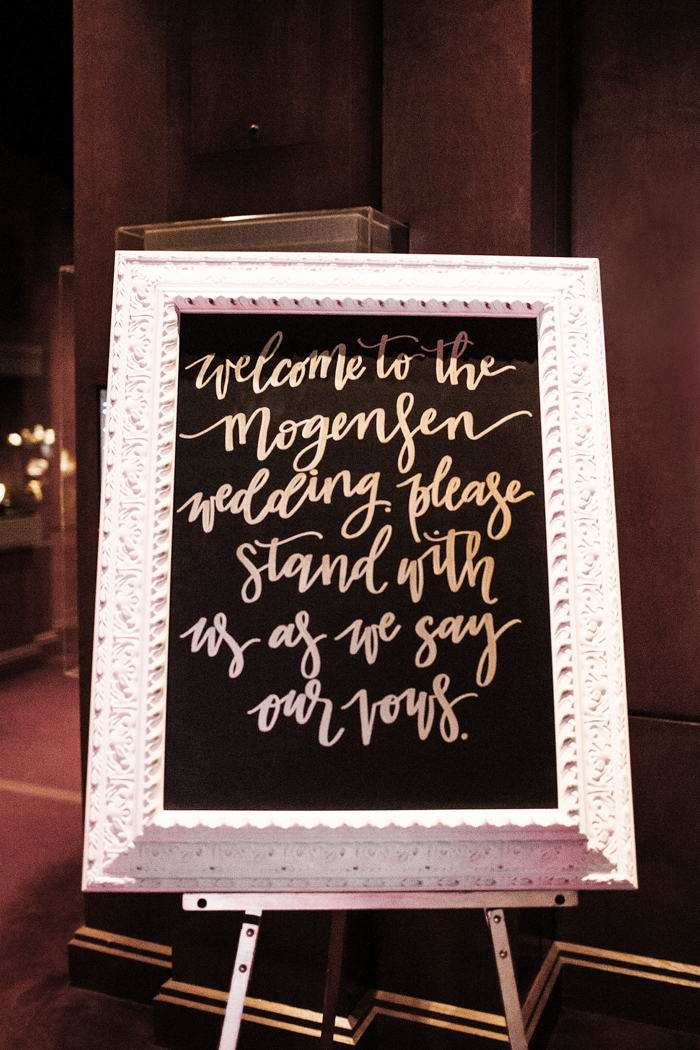 welcome to the
mogensen
wedding. please
stand with
us as we say
our vows.